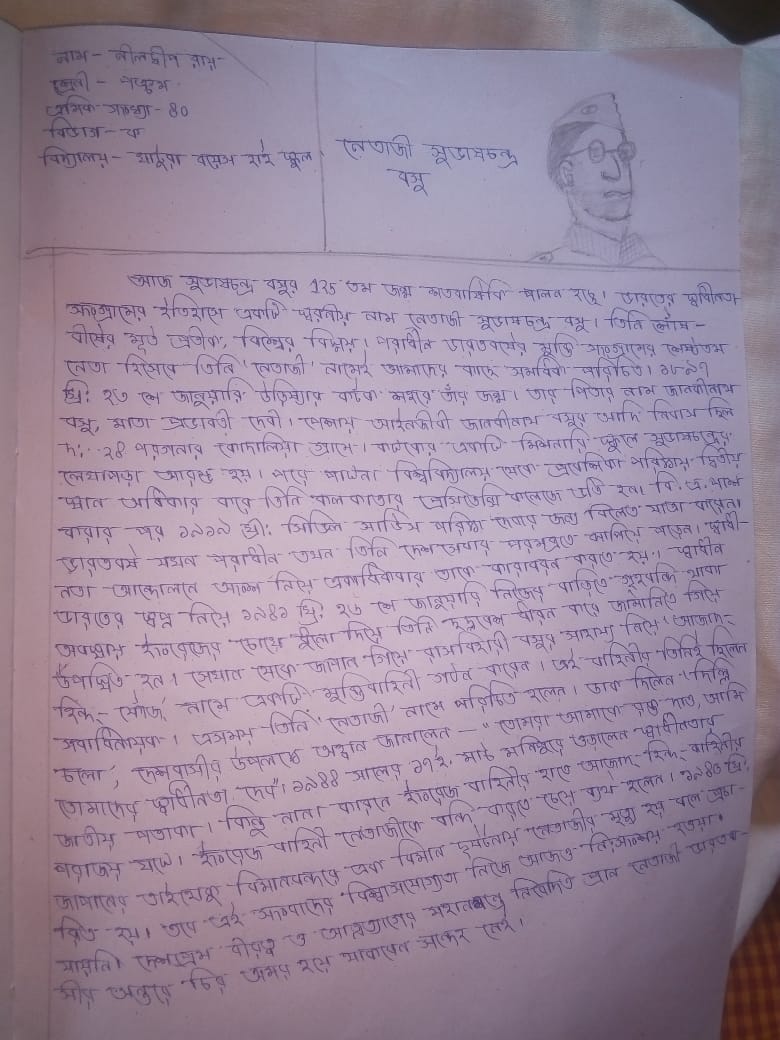 নাম - নীলদ্বীপ রায়
শ্রেনী - পঞ্চম
ক্রমিক সংখ্যা - 40
বিভাগ - ক
বিদ্যালয় - হাই স্কুল
নেতাজী সুভাষচন্দ্র
বসু
আজ সুভাষচন্দ্র বসুর 125 তম জন্ম শতবার্ষিকি পালন হচ্ছে। ভারতের স্বাধীনতা
সংগ্রামের ইতিহাসে একটি স্মরণীয় নাম নেতাজী সুভাষচন্দ্র বসু। তিনি শৌয্য-
বীর্যের মূর্ত প্রতীক, বিশ্বের বিস্ময়। পরাধীন ভারতবর্ষের মুক্তি সংগ্রামের শ্রেষ্ঠতম
নেতা হিসেবে তিনি 'নেতাজী' নামেই আমাদের কাছে সমধিক পরিচিত। ১৮৯৭
খ্রি: ২৩ শে জানুয়ারি উড়িষ্যার কটক শহরে তাঁর জন্ম। তার পিতার নাম জানকীনাথ
বসু, মাতা প্রভাবতী দেবী। পেশায় আইনজীবী জানকীনাথ বসুর আদি নিবাস ছিল
দ: ২৪ পরগনার কোদালিয়া গ্রামে। কটকের একটি মিশনারি স্কুলে সুভাষচন্দ্রের
লেখাপড়া আরম্ভ হয়। পরে পাটনা বিশ্ববিদ্যালয় থেকে প্রবেশিকা পরিক্ষায় দ্বিতীয়
স্থান অধিকার করে তিনি কলকাতার প্রেসিডেন্সি কলেজে ভর্তি হন। বি. এ. পাশ
করার পর ১৯১৯ খ্রি: সিভিল সার্ভিস পরিক্ষা দেবার জন্য বিলেত যাত্রা করেন।
ভারতবর্ষ যখন পরাধীন তখন তিনি দেশ সেবার পরমব্রতে ঝাপিয়ে পড়েন। স্বাধী-
নতা আন্দোলনে অংশ নিয়ে একাধিকবার তাকে কারাবরন করতে হয়। স্বাধীন
ভারতের স্বপ্ন নিয়ে ১৯৪১ খ্রি: ২৬ শে জানুয়ারি নিজের বাড়িতে গৃহবন্দি থাকা
অবস্থায় ইংরেজের চোখে ধুলো দিয়ে তিনি ছদ্মবেশ ধারন করে জার্মানিতে গিয়ে
উপস্থিত হন। সেখান থেকে জাপান গিয়ে রাসবিহারী বসুর সাহায্য নিয়ে 'আজাদ-
হিন্দ- ফৌজ' নামে একটি মুক্তিবাহিনী গঠন করেন। এই বাহিনীর তিনিই ছিলেন
সর্বাধিনায়ক। এসময় তিনি 'নেতাজী' নামে পরিচিত হলেন। ডাক দিলেন 'দিল্লি
চলো', দেশবাসীর উদ্দেশ্যে আহ্বান জানালেন - "তোমরা আমাকে রক্ত দাও, আমি
তোমাদের স্বাধীনতা দেব"। ১৯৪৪ সালের ১৭ই মার্চ মণিপুরে ওড়ালেন স্বাধীনতার
জাতীয় পতাকা। কিন্তু নানা কারনে ইংরেজ বাহিনীর হাতে আজাদ হিন্দ বাহিনীর
পরাজয় ঘটে। ইংরেজ বাহিনী নেতাজীকে বন্দি করতে চেয়ে ব্যর্থ হলেন। ১৯৪৫ খ্রি:
জাপানের তাইহোকু বিমানবন্দরে এক বিমান দুর্ঘটনায় নেতাজীর মৃত্যু হয় বলে প্রচা-
রিত হয়। তবে এই সংবাদের বিশ্বাসযোগ্যতা নিয়ে আজও নি:সংশয় হওয়া
যায়নি। দেশপ্রেম বীরত্ব ও আত্মত্যাগের মহানব্রতে নিবেদিত প্রান নেতাজী ভারতবা-
সীর অন্তরে চির অমর হয়ে থাকবেন সন্দেহ নেই।